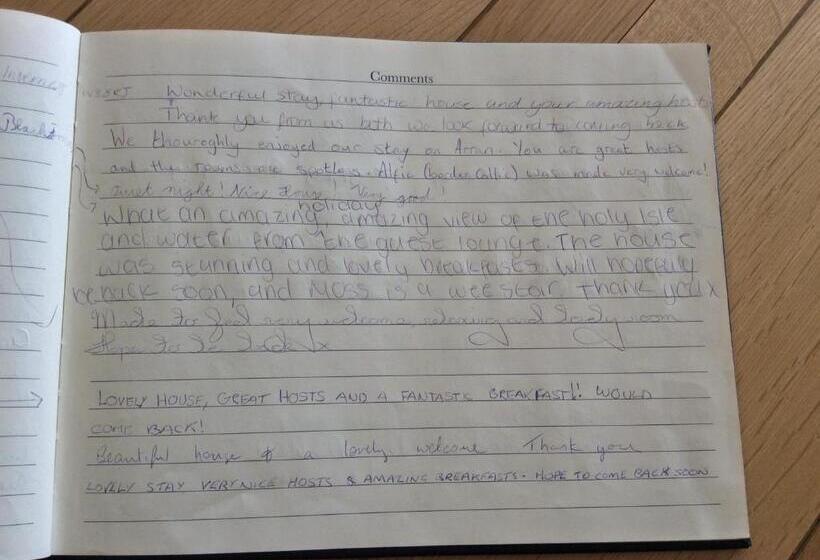 Comments
Wonderful stay, fantastic house and your amazing hosts
Thank you from us both we look forward to coming back
We thouroghly enjoyed our stay on Arran. You are great hosts
and the rooms are spotless. Alfie (border Collie) was made very welcome!
night! Nice House! Very good!
holiday
What an amazing, amazing view of the holy Isle
and water from the guest lounge. The house
was stunning and lovely breakfasts. Will hopefully
be back soon, and Moss is a wee star. Thank you x
Made to feel very welcome, relaxing and lovely room
Hope to be back x
LOVELY HOUSE, GREAT HOSTS AND A FANTASTIC BREAKFAST!! WOULD
COME BACK!
Beautiful house & a lovely welcome Thank you
LOVELY STAY VERY NICE HOSTS & AMAZING BREAKFASTS. HOPE TO COME BACK SOON